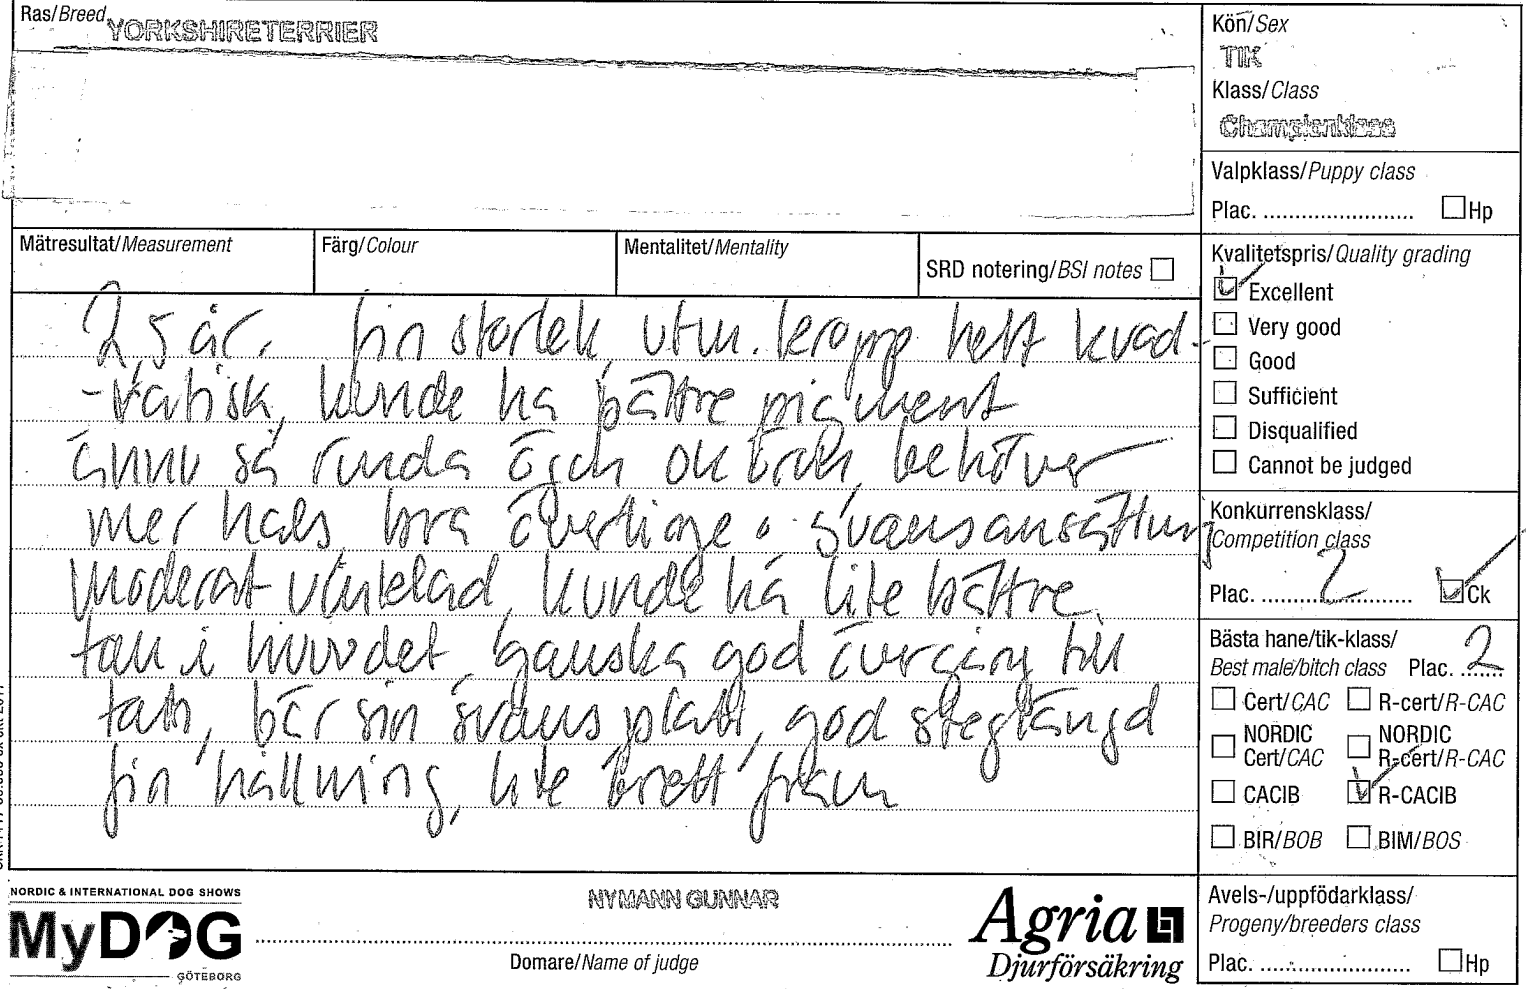 Ras/Breed YORKSHIRETERRIER
Kön/Sex
TIK
Klass/Class
Championklass
Valpklass/Puppy class
Plac. ........................ Hp
Mätresultat/Measurement
Färg/Colour
Mentalitet/Mentality
SRD notering/BSI notes
2,5 år. fin storlek, utm. kropp helt kvad-
-ratisk, kunde ha bättre pigment
ännu så runda ögon och öron, behöver
mer hals, bra överlinje o svansansättning
moderat vinklad, kunde ha lite bättre
tan i huvudet ganska god övergång till
tan, bär sin svans platt, god steglängd
fin hållning, lite brett fram
Kvalitetspris/Quality grading
Excellent
Very good
Good
Sufficient
Disqualified
Cannot be judged
Konkurrensklass/
Competition class
Plac. 2 Ck
Bästa hane/tik-klass/
Best male/bitch class Plac. 2
Cert/CAC R-cert/R-CAC
NORDIC Cert/CAC NORDIC R-cert/R-CAC
CACIB R-CACIB
BIR/BOB BIM/BOS
Avels-/uppfödarklass/
Progeny/breeders class
Plac. ........................ Hp
NORDIC & INTERNATIONAL DOG SHOWS
MyDOG
GÖTEBORG
NYMANN GUNNAR
Domare/Name of judge
Agria
Djurförsäkring